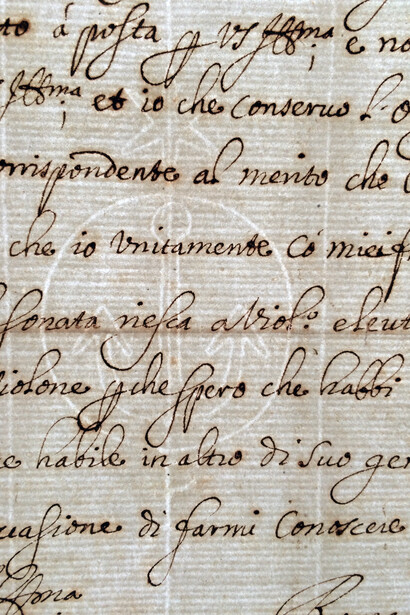 to à posta ꝑ VS Illma; e no
Illma; et io che conseruo l'o
orrispondente al merito che
che io Vnitamente Cō miei f
sonata riesca a Viol.o e leut
iolone ꝑche spero che habbi
e habile in altro di suo gen
casione di farmi Conoscere
Illma